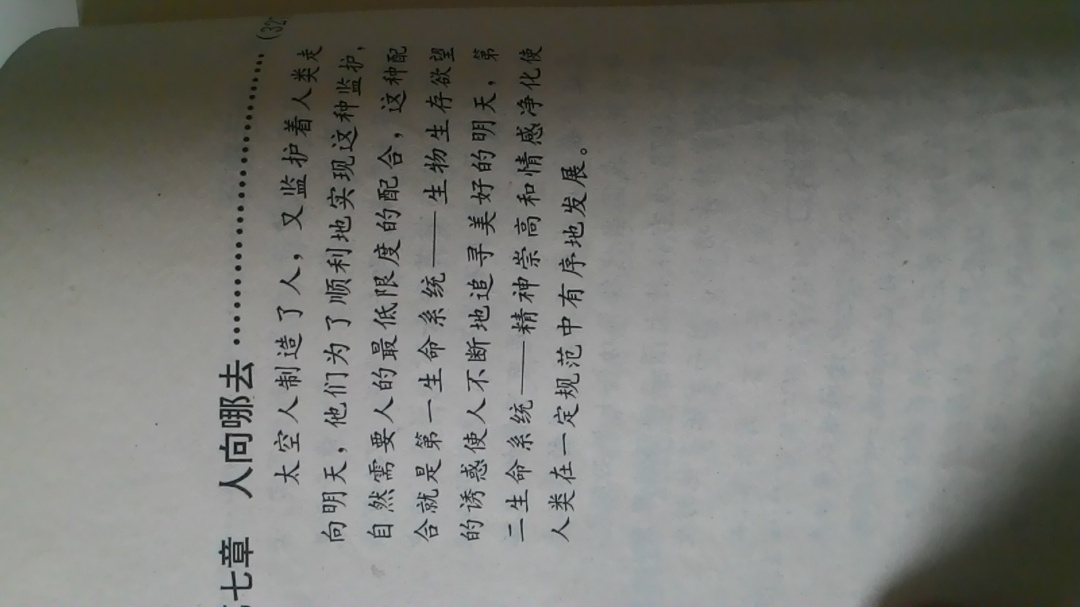 七章 人向哪去……………………(32
太空人制造了人，又监护着人类走
向明天，他们为了顺利地实现这种监护，
自然需要人的最低限度的配合，这种配
合就是第一生命系统——生物生存欲望
的诱惑使人不断地追寻美好的明天，第
二生命系统——精神崇高和情感净化使
人类在一定规范中有序地发展。